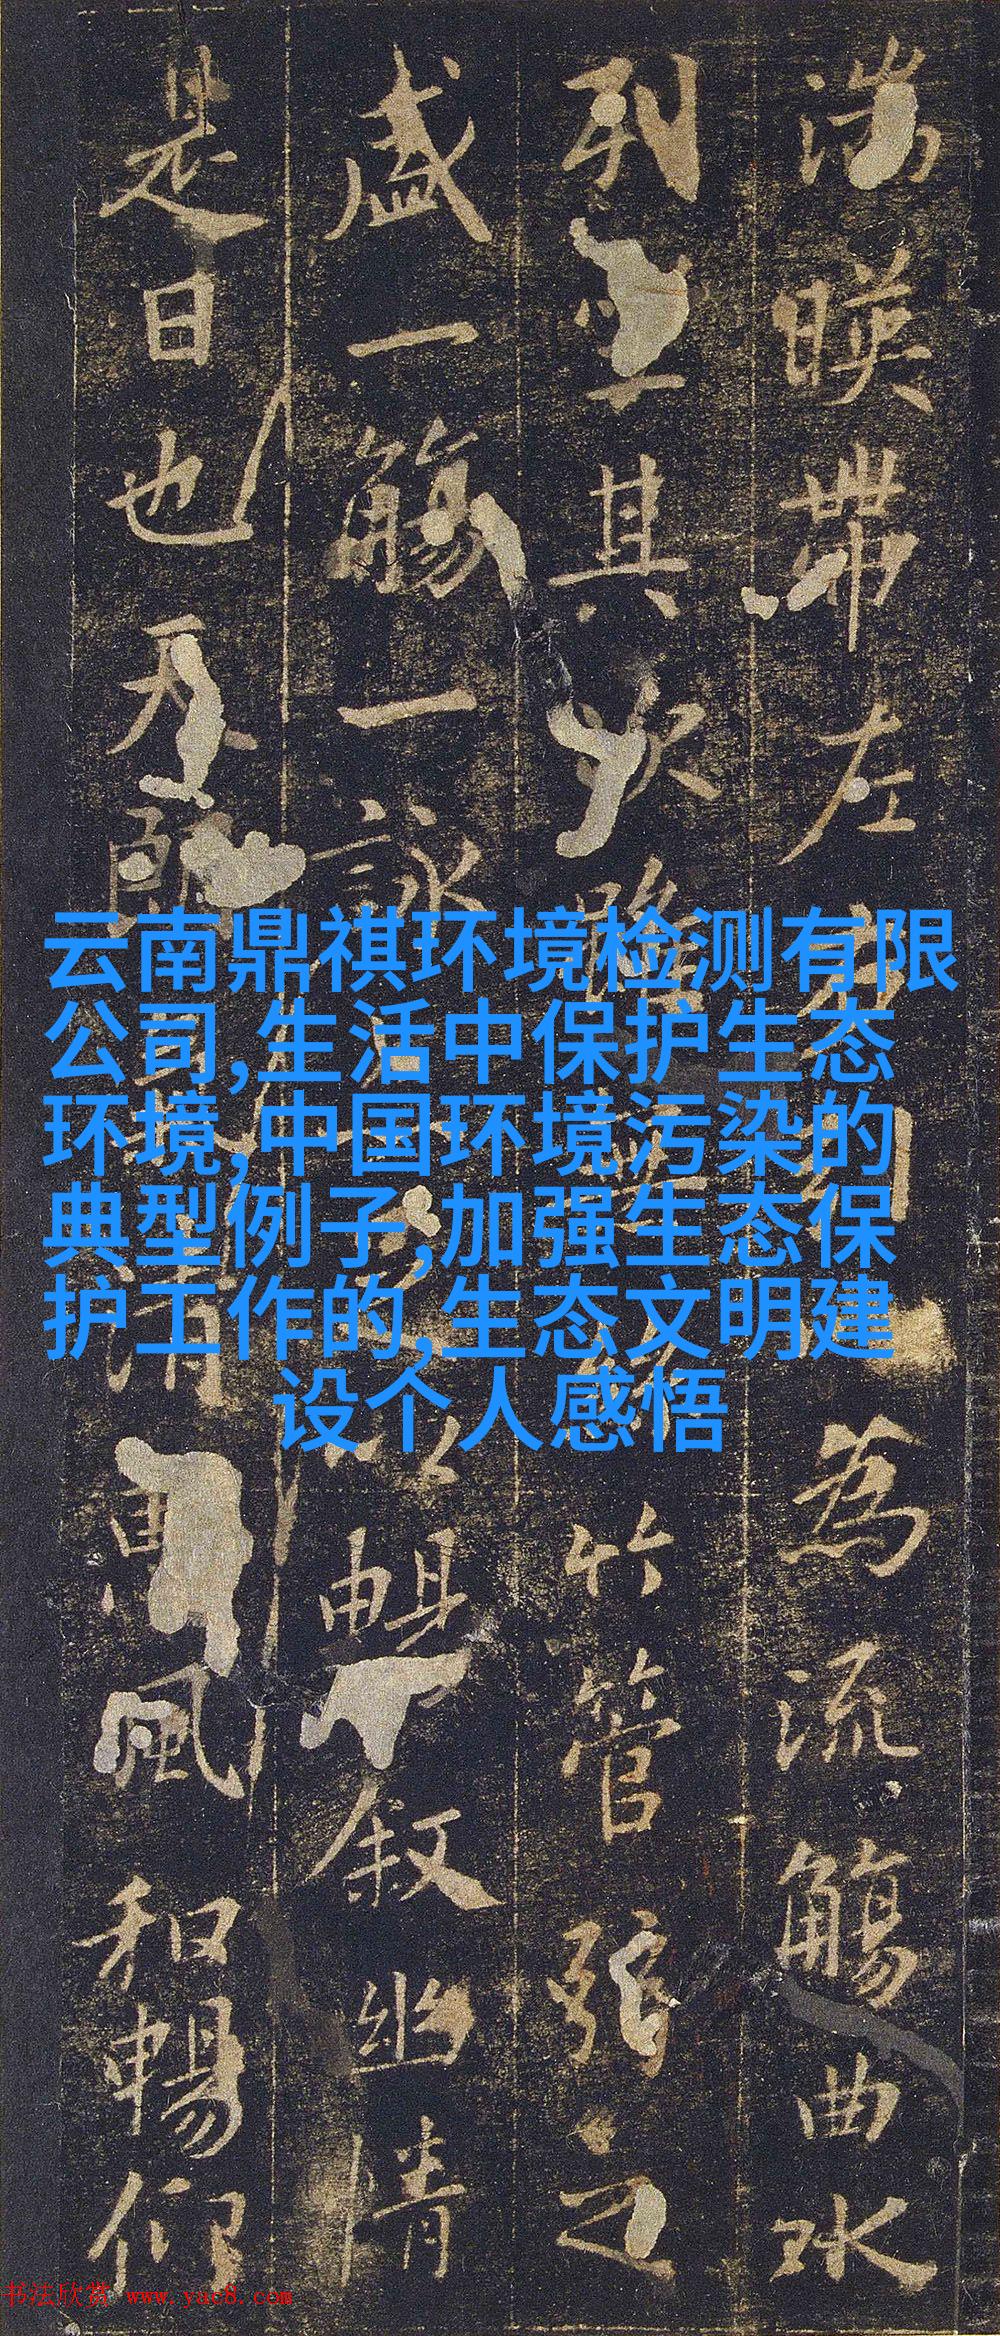 湍暎帶左右
為流觴曲水
列坐其次雖無絲竹管弦之
盛一觴一詠亦足以暢敘幽情
是日也天朗氣清惠風和暢仰
云南鼎祺环境检测有限
公司,生活中保护生态
环境,中国环境污染的
典型例子,加强生态保
护工作的,生态文明建
设个人感悟
书法欣赏 www.yac8.com